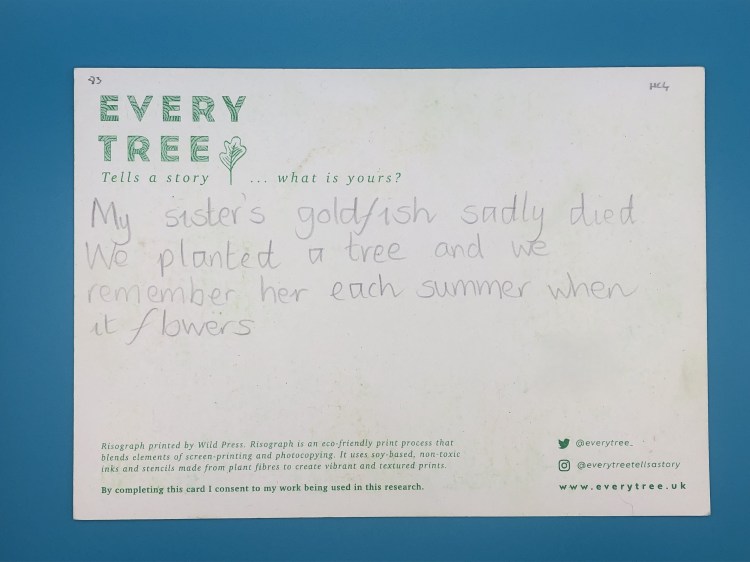 93
HC4
EVERY
TREE
Tells a story ... what is yours?
My sister's goldfish sadly died
We planted a tree and we
remember her each summer when
it flowers
Risograph printed by Wild Press. Risograph is an eco-friendly print process that
blends elements of screen-printing and photocopying. It uses soy-based, non-toxic
inks and stencils made from plant fibres to create vibrant and textured prints.
By completing this card I consent to my work being used in this research.
@everytree_
@everytreetellsastory
www.everytree.uk